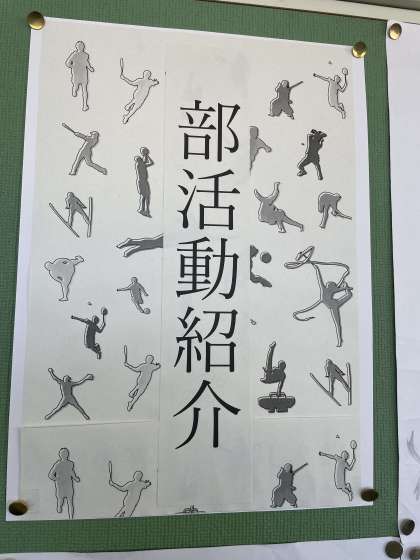 部活動紹介